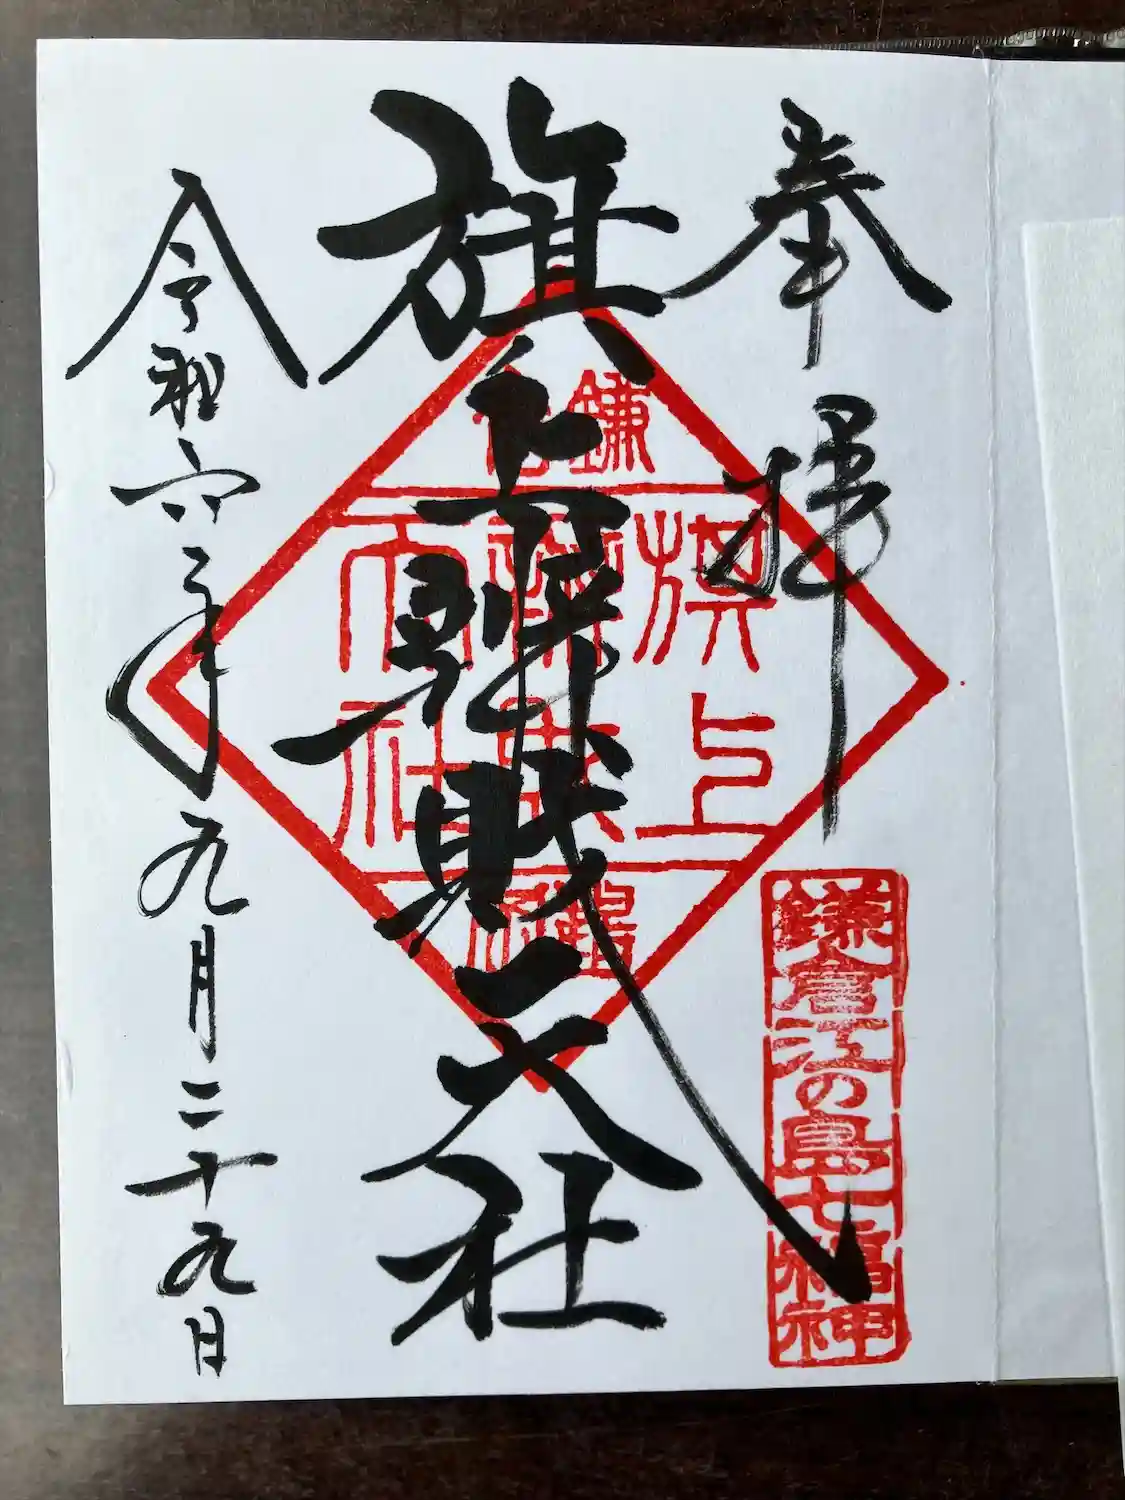 奉拝
鎌倉江の島七福神
旗上辯財天社
鎌倉
旗上
辨財
天社
令和六年九月二十九日